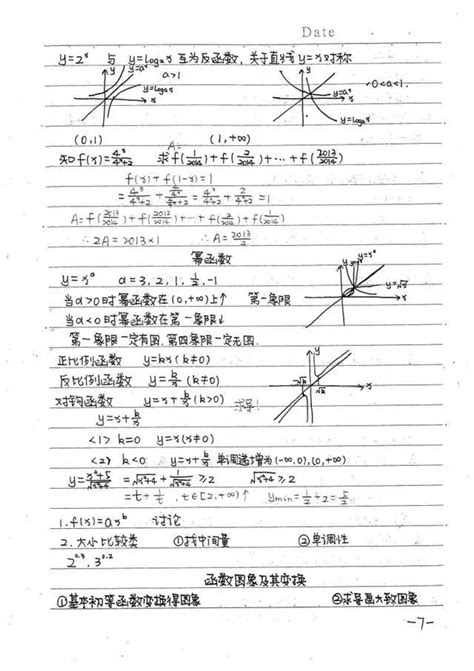 Date
y=2ˣ 与 y=logₐx 互为反函数,关于直线 y=x 对称
y=aˣ a>1 y=logₐx x
0<a<1 y=aˣ x y=logₐx
(0,1) (1,+∞)
知f(x)=4ˣ/(4ˣ+2) A= 求f(1/2014)+f(2/2014)+…+f(2013/2014)
f(x)+f(1-x)=1
=4ˣ/(4ˣ+2)+(4/4ˣ)/(4/4ˣ+2)=4ˣ/(4ˣ+2)+2/(4ˣ+2)=1
A=f(2013/2014)+f(2012/2014)+…+f(2/2014)+f(1/2014)
∴2A=2013×1 ∴A=2013/2
幂函数
y=xᵅ a=3,2,1,1/2,-1
当a>0时幂函数在(0,+∞)上↑ 第一象限
当a<0时幂函数在第一象限↓
y y=√x x
第一象限一定有图,第四象限一定无图.
正比例函数 y=kx(k≠0)
反比例函数 y=k/x(k≠0)
对钩函数 y=x+k/x(k>0) 求导!
y -√k √k x
y=x+k/x
<1> k=0 y=x(x≠0)
<2> k<0 y=x+k/x 单调递增为(-∞,0),(0,+∞)
y=(x²+5)/√(x²+4) =√(x²+4)+1/√(x²+4)≥2 √(x²+4)≥2
=t+1/t,t∈[2,+∞)↑ ymin=1/2+2=5/2
1.f(x)=axᵇ 讨论
2.大小比较类 ①找中间量 ②单调性
2^0.3,3^0.2
函数图象及其变换
①基本初等函数变换得图象 ②求导画大致图象
-7-